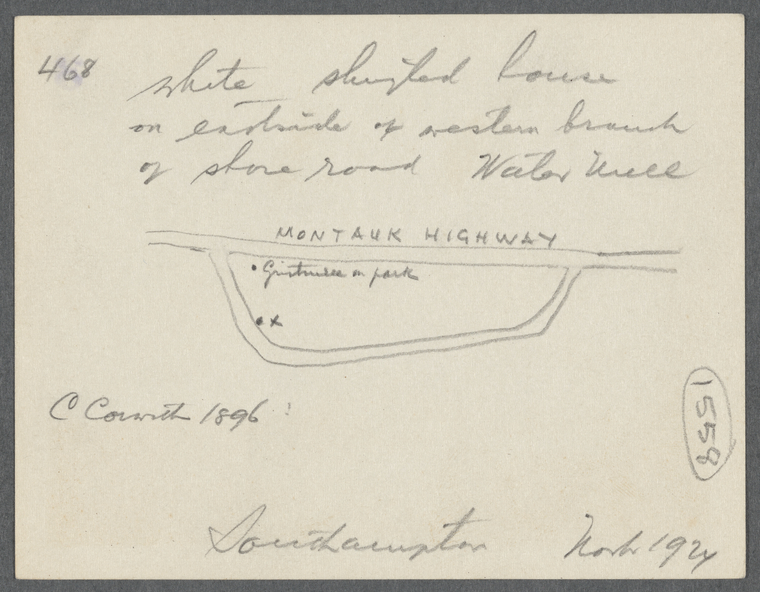 468
white shingled house
on eastside of western branch
of shore road Water Mill
MONTAUK HIGHWAY
Gristmill on park
x
C Corwith 1896
1558
Southampton 192